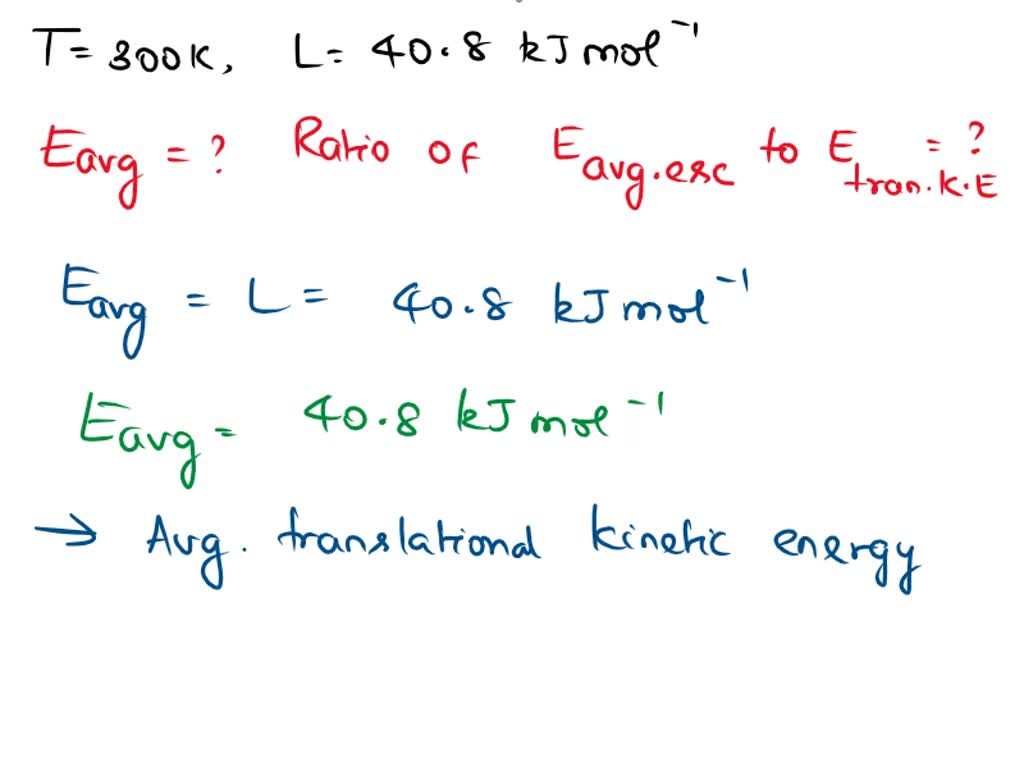 T= 300K, L= 40.8 kJ mol⁻¹
Eavg = ? Ratio of Eavg.esc to Etran.K.E = ?
Eavg = L = 40.8 kJ mol⁻¹
Eavg = 40.8 kJ mol⁻¹
→ Avg. translational kinetic energy